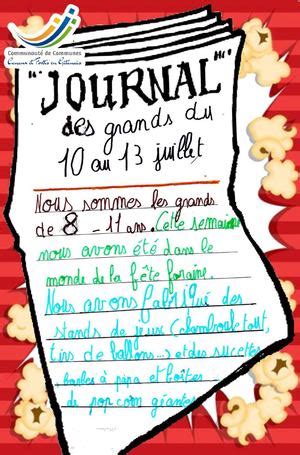 Communauté de Communes
"JOURNAL"
des grands du
10 au 13 juillet
Nous sommes les grands
de 8 - 11 ans. Cette semaine
nous avons été dans le
monde de la fête foraine.
Nous avons fabriqué des
stands de jeux (chamboule tout,
tirs de ballons...) et des sucettes,
barbes à papa et boîtes
de pop corn géantes.